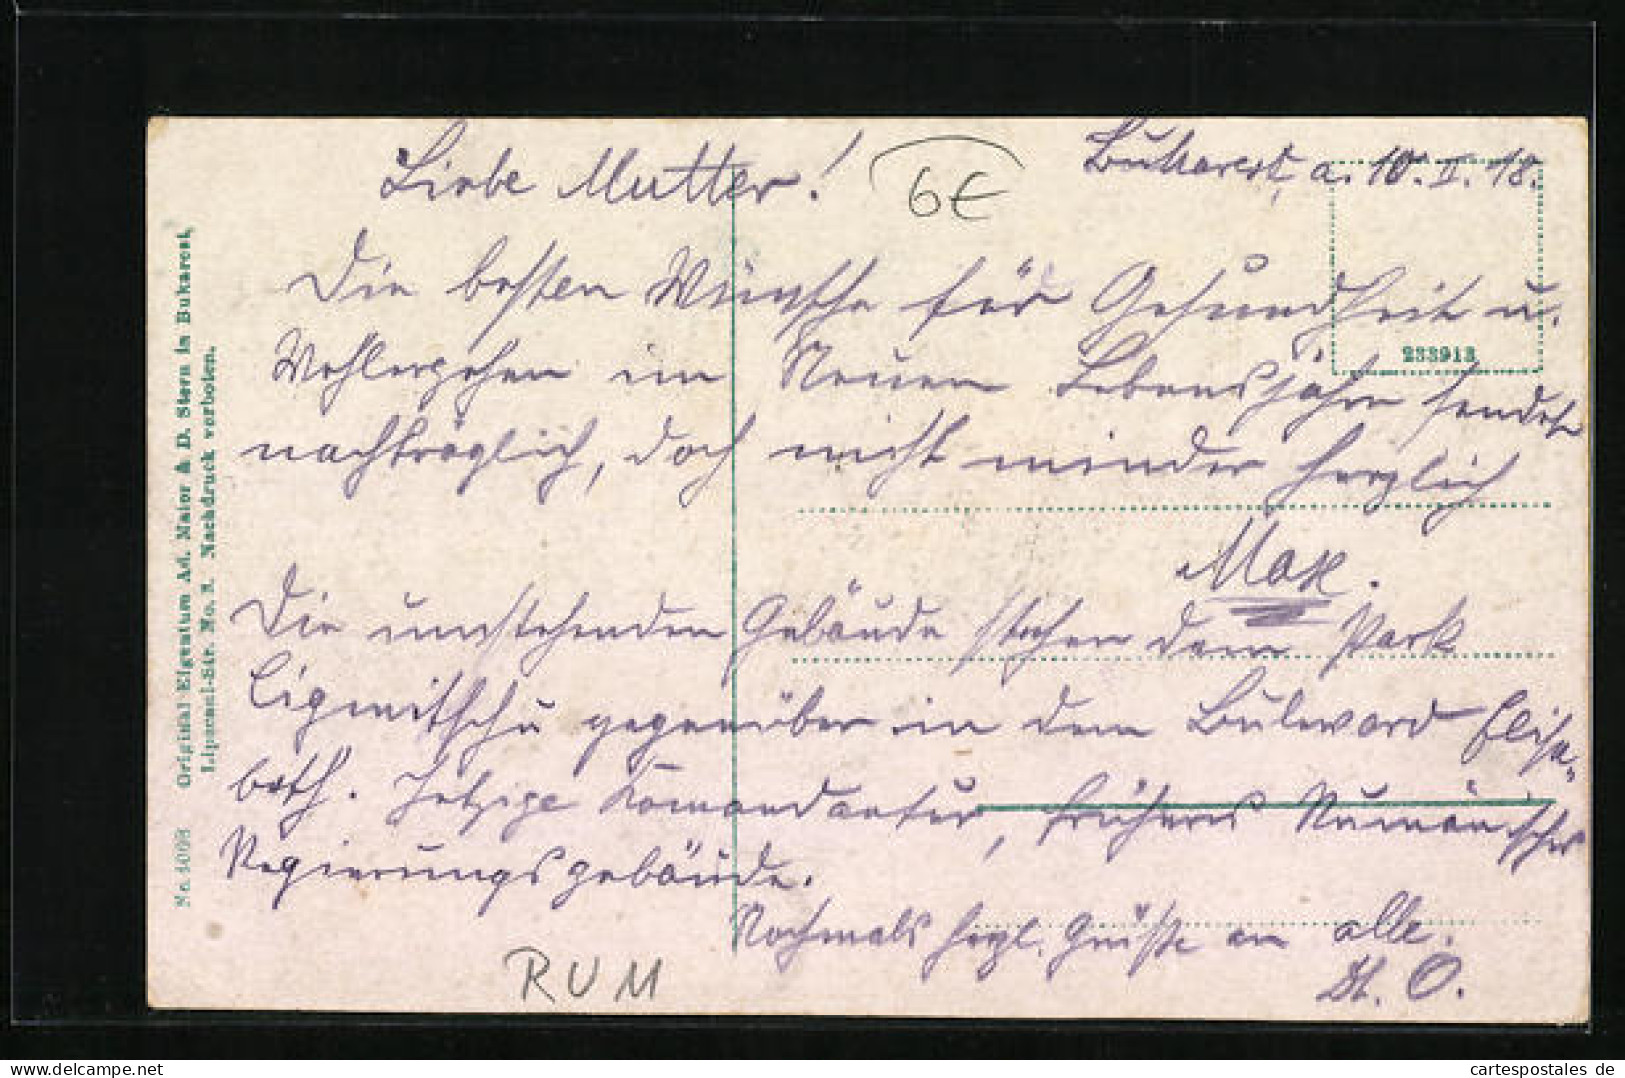 Bukarest, a. 10. II. 18.
Liebe Mutter!
6€
Die besten Wünsche für Gesundheit u.
Wohlergehen im Neuen Lebensjahre sendet
nachträglich, doch nicht minder herzlich
Max.
Die umstehenden Gebäude stehen dem Park
Cigmitschu gegenüber in dem Bulevard Elisa-
beth. Jetzige Komandantur, früheres Rumänischer
Regierungsgebäude.
Nochmals hrzl. Grüße an alle.
D. O.
RUM
233913
No. Original Eigentum Ad. Maior & D. Stern in Bukarest,
Lipscani-Str. No. 3. Nachdruck verboten.
www.cartespostales.de